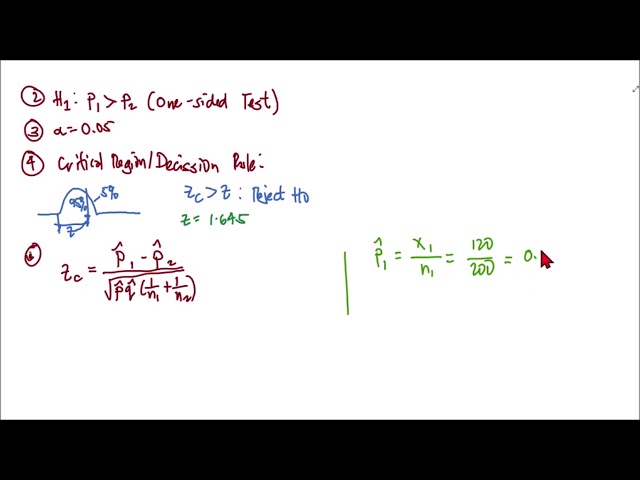 ② H₁: P₁ > P₂ (One-sided Test)
③ α=0.05
④ Critical Region/Decission Rule:
95% 5%
z
Zc > Z : Reject Ho
Z = 1.645
Zc = (p̂₁ - p̂₂) / √(p̂q̂(1/n₁ + 1/n₂))
p̂₁ = x₁/n₁ = 120/200 = 0.